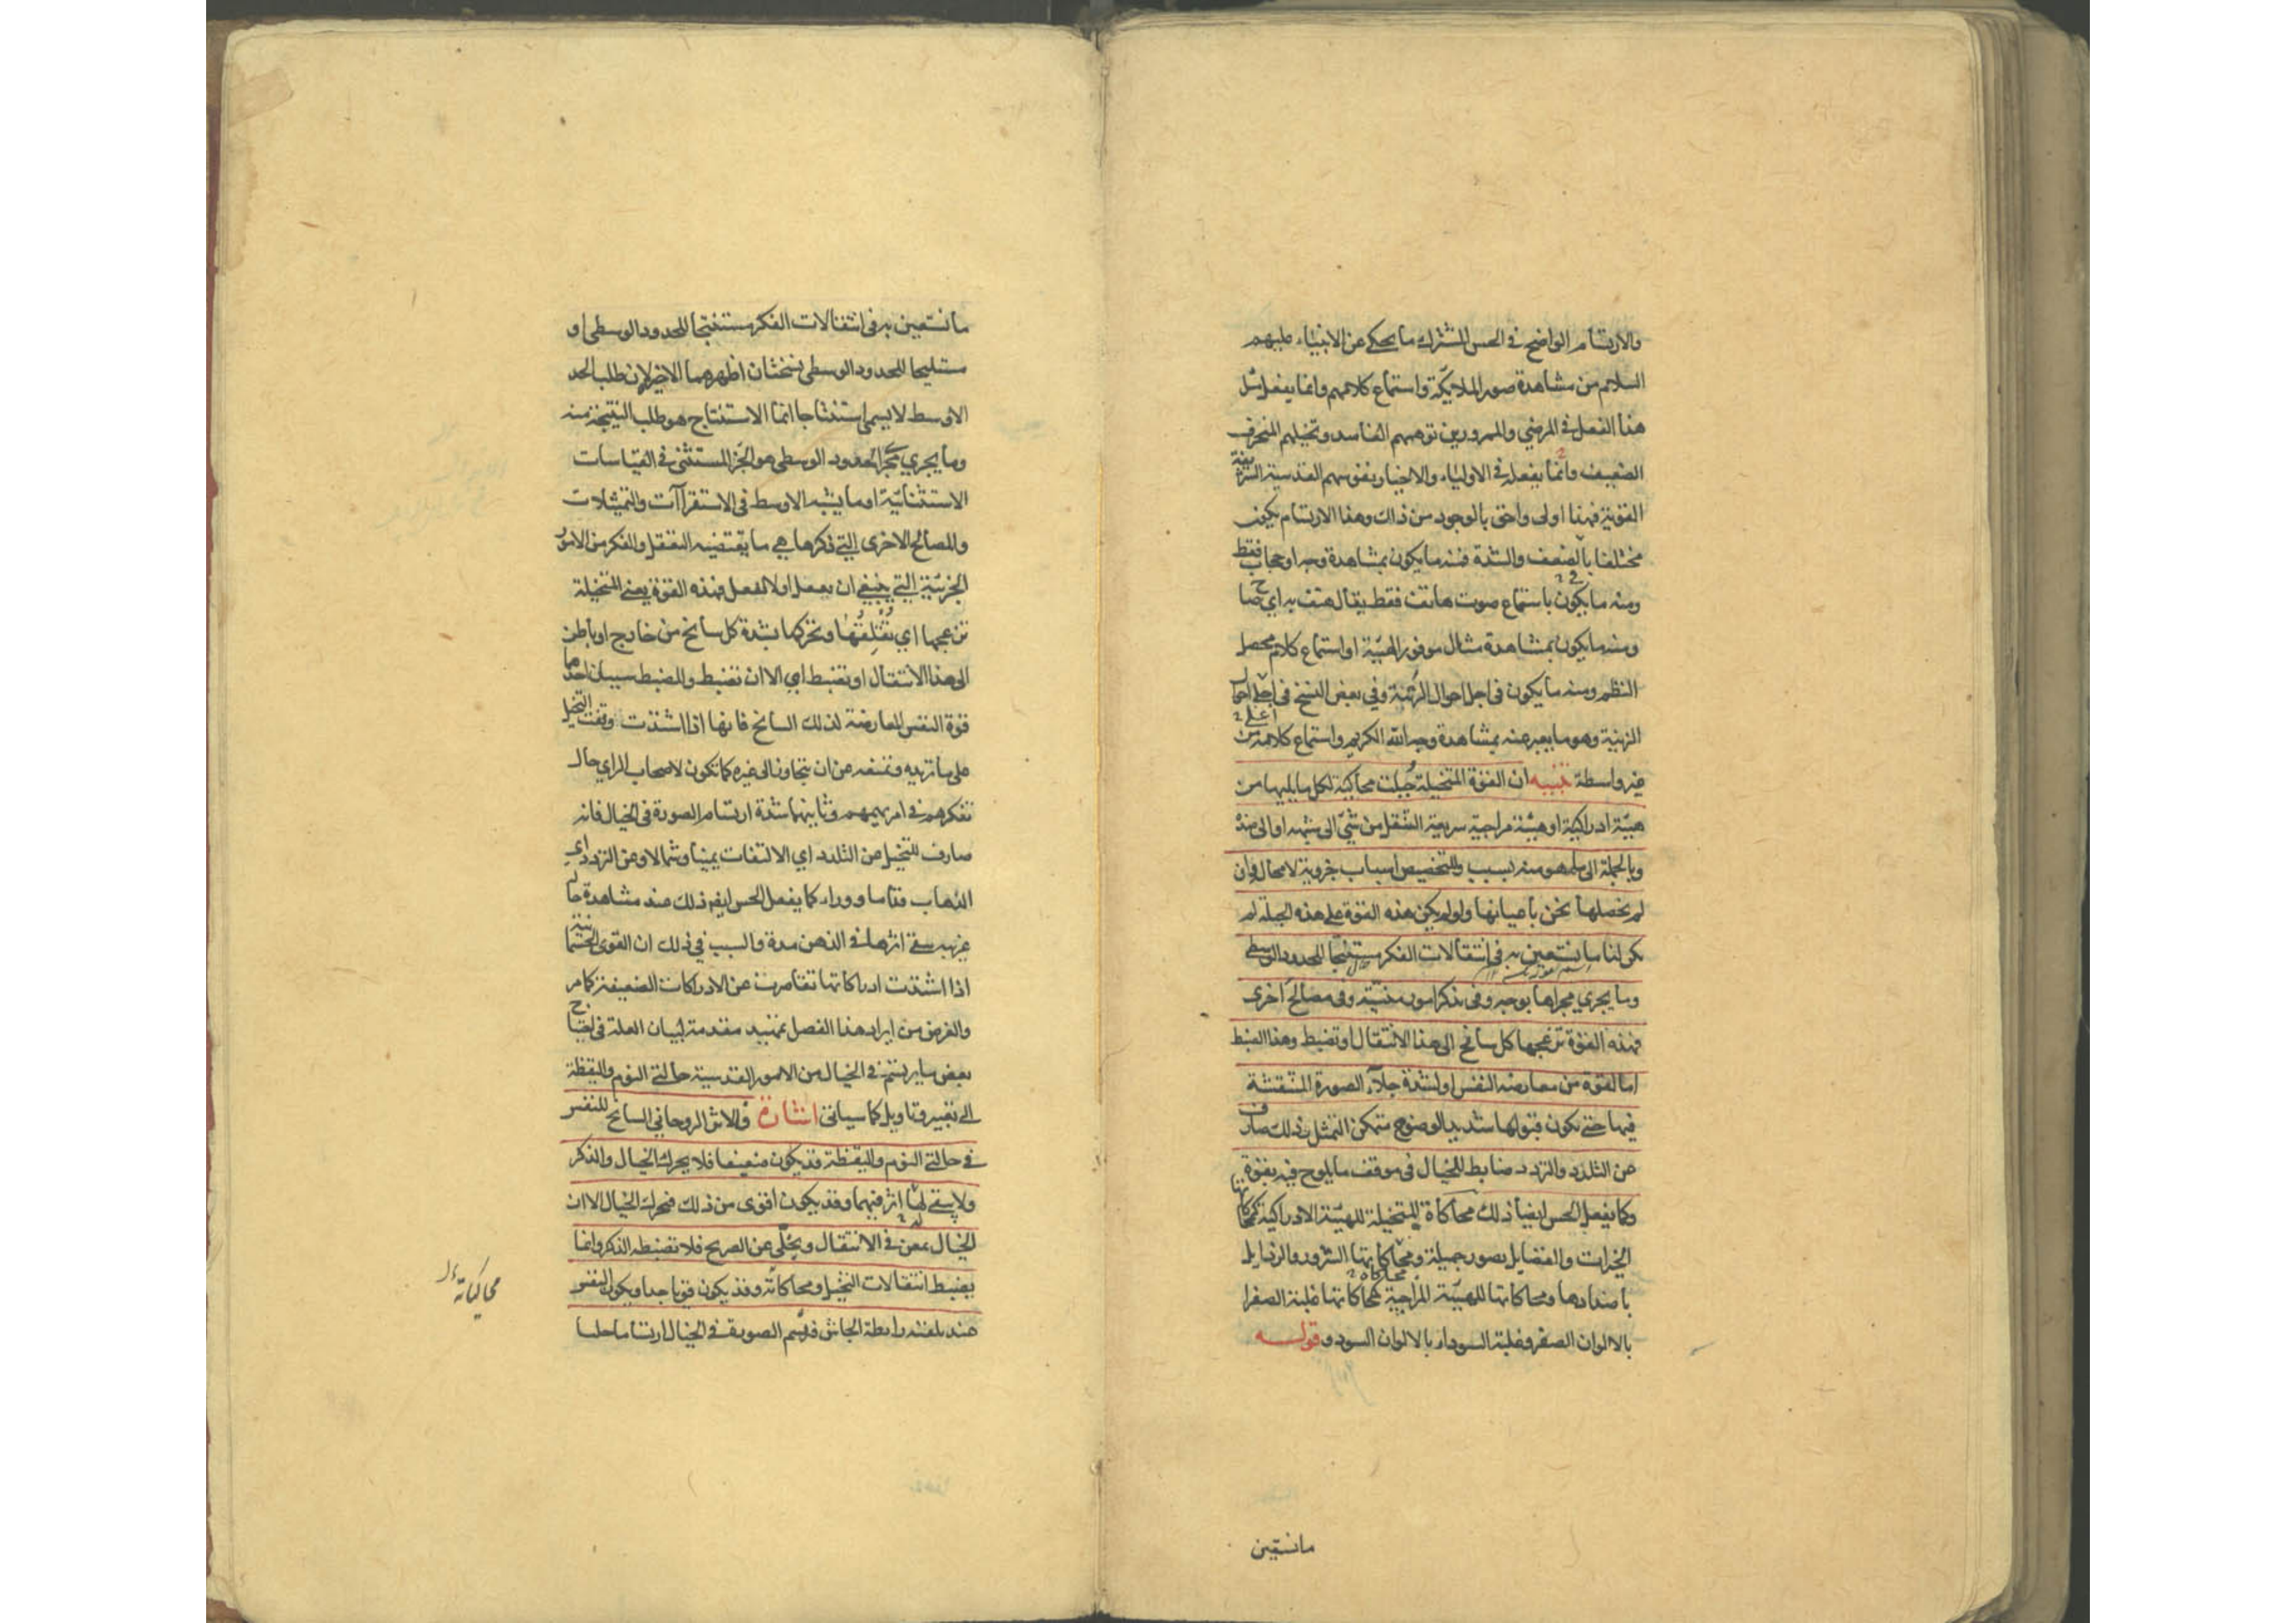 والارتسام الواضح في الحس المشترك ما يحكى عن الانبياء عليهم
السلام من مشاهدة صور الملايكة واستماع كلامهم وانما يفعل مثل
هذا الفعل في المرضى والممرورين توهمهم الفاسد وتخيلهم المنحرف
الضعيف وانما يفعله في الاولياء والاخيار نفوسهم القدسية الشريفة
القوية فهذا اولى واحق بالوجود من ذلك وهذا الارتسام يكون
مختلفا بالضعف والشدة فمنه ما يكون بمشاهدة وجه او حجاب فقط
ومنه ما يكون باستماع صوت هاتف فقط يقال هتف به اي صاح
ومنه ما يكون بمشاهدة مثال موفور الهيئة او استماع كلام محصل
النظم ومنه ما يكون في اجل احوال الزينة وفي بعض النسخ في اجلى احوال
الزينة وهو ما يعبر عنه بمشاهدة وجه الله الكريم واستماع كلامه من
غير واسطة تنبيه ان القوة المتخيلة جُبلت محاكية لكل ما يليها من
هيئة ادراكية او هيئة مزاجية سريعة التنقل من شيء الى شبهه او الى ضده
وبالجملة الى ما هو منه بسبب وللتخصيص اسباب جزوية لا محالة وان
لم نحصلها نحن باعيانها ولو لم يكن هذه القوة على هذه الجبلة لم
يكن لنا ما نستعين به في انتقالات الفكر مستنتجا للحدود الوسطى
وما يجري مجراها بوجه وفي تذكر امور منسيّة وفي مصالح اخرى
فهذه القوة تزعجها كل سانح الى هذا الانتقال او تضبط وهذا الضبط
اما لقوة من معارضة النفس او لشدة جلاء الصورة المنتقشة
فيها حتى تكون قبولها شديد الوضوح متمكن التمثل وذلك صارف
عن التلدد والتردد ضابط للخيال في موقف ما يلوح فيه بقوة
وكما يفعل الحس ايضا ذلك محاكاة المتخيلة للهيئة الادراكية كمحاكاتها
الخيرات والفضايل بصور جميلة ومحاكاتها الشرور والرذايل
باضدادها ومحاكاتها للهيئة المزاجية كمحاكاتها غلبة الصفرا
بالالوان الصفر وغلبة السوداء بالالوان السود وقوله
ما نستعين
ما نستعين به في انتقالات الفكر مستنتجا للحدود الوسطى او
مستليحا للحدود الوسطى نسختان اظهرهما الاخير لان طلب الحد
الاوسط لا يسمى استنتاجا انما الاستنتاج هو طلب النتيجة منه
وما يجري مجرى الحدود الوسطى هو الجزء المستثنى في القياسات
الاستثنائية او ما يشبه الاوسط في الاستقراآت والتمثيلات
والمصالح الاخرى التي ذكرها هي ما يقتضيه التعقل والفكر من الامور
الجزئية التي ينبغي ان يفعل او لا يفعل فهذه القوة يعني المتخيلة
تزعجها اي تُقْلِقُها وتحركها بشدة كل سانح من خارج او باطن
الى هذا الانتقال او تضبط اي الا ان تضبط وللضبط سببان احدهما
قوة النفس المعارضة لذلك السانح فانها اذا اشتدت وقفت التخيل
على ما تريده وتمنعه من ان يتجاوز الى غيره كما تكون لاصحاب الراي حال
تفكرهم في امر يهمهم وثانيها شدة ارتسام الصورة في الخيال فانه
صارف للتخيل عن التلدد اي الالتفات يمينا وشمالا وعن التردد اي
الذهاب قداما ووراء كما يفعل الحس ايضا ذلك عند مشاهدة حالة
غريبة يبقى اثرها في الذهن مدة والسبب في ذلك ان القوى الجسمانية
اذا اشتدت ادراكاتها تقاصرت عن الادراكات الضعيفة كما مر
والغرض من ايراد هذا الفصل تمهيد مقدمة لبيان العلة في احتياج
بعض ما يرتسم في الخيال من الامور القدسية حالتي النوم واليقظة
الى تعبير وتاويل كما سياتي اشارة والاثر الروحاني السانح للنفس
في حالتي النوم واليقظة قد يكون ضعيفا فلا يحرك الخيال والذكر
ولا يبقى له اثر فيهما وقد يكون اقوى من ذلك فيحرك الخيال الا ان
الخيال يمعن في الانتقال ويخلّي عن الصريح فلا تضبطه الذكر وانما
يضبط انتقالات التخيل ومحاكاته وقد يكون قويا جدا ويكون النفس
عند تلقيه رابطة الجاش فترتسم الصورة في الخيال ارتساما جليا
محاكياته